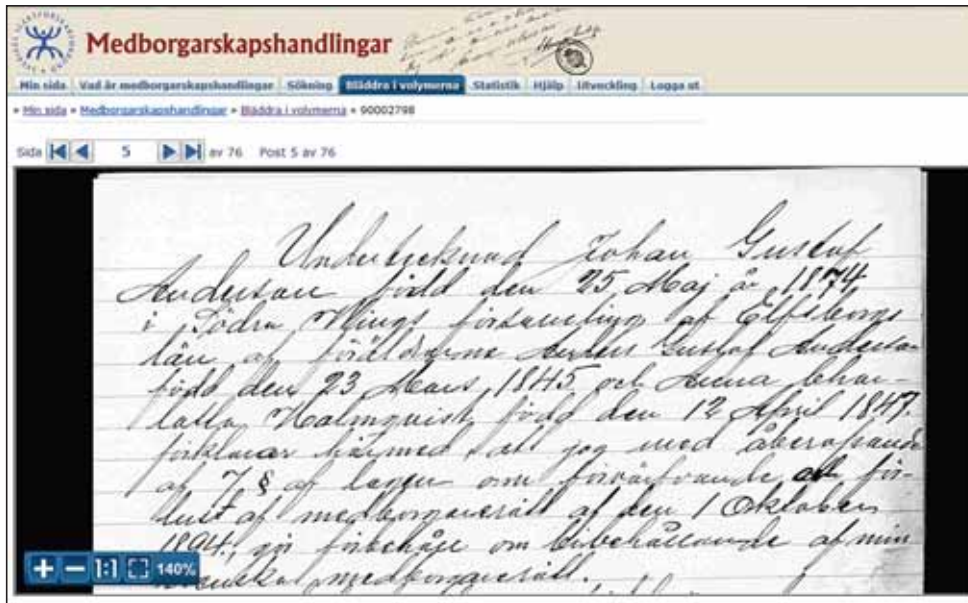 Medborgarskapshandlingar
Min sida Vad är medborgarskapshandlingar Sökning Bläddra i volymerna Statistik Hjälp Utveckling Logga ut
» Min sida » Medborgarskapshandlingar » Bläddra i volymerna » 90002798
Sida 5 av 76 Post 5 av 76
Undertecknad Johan Gustaf
Anderson född den 25 Maj år 1874
i Södra Wings församling af Elfsborgs
län af föräldrarne Anders Gustaf Anderson
född den 23 Mars 1845 och Anna Char-
lotta Malmqvist, född den 12 April 1847.
förklarar härmed, att jag med åberopande
af 7 § af lagen om förvärfvande och för-
lust af medborgarerätt af den 1 Oktober
1894, gör förbehåll om bibehållande af min
svenska medborgarerätt.
1:1 140%